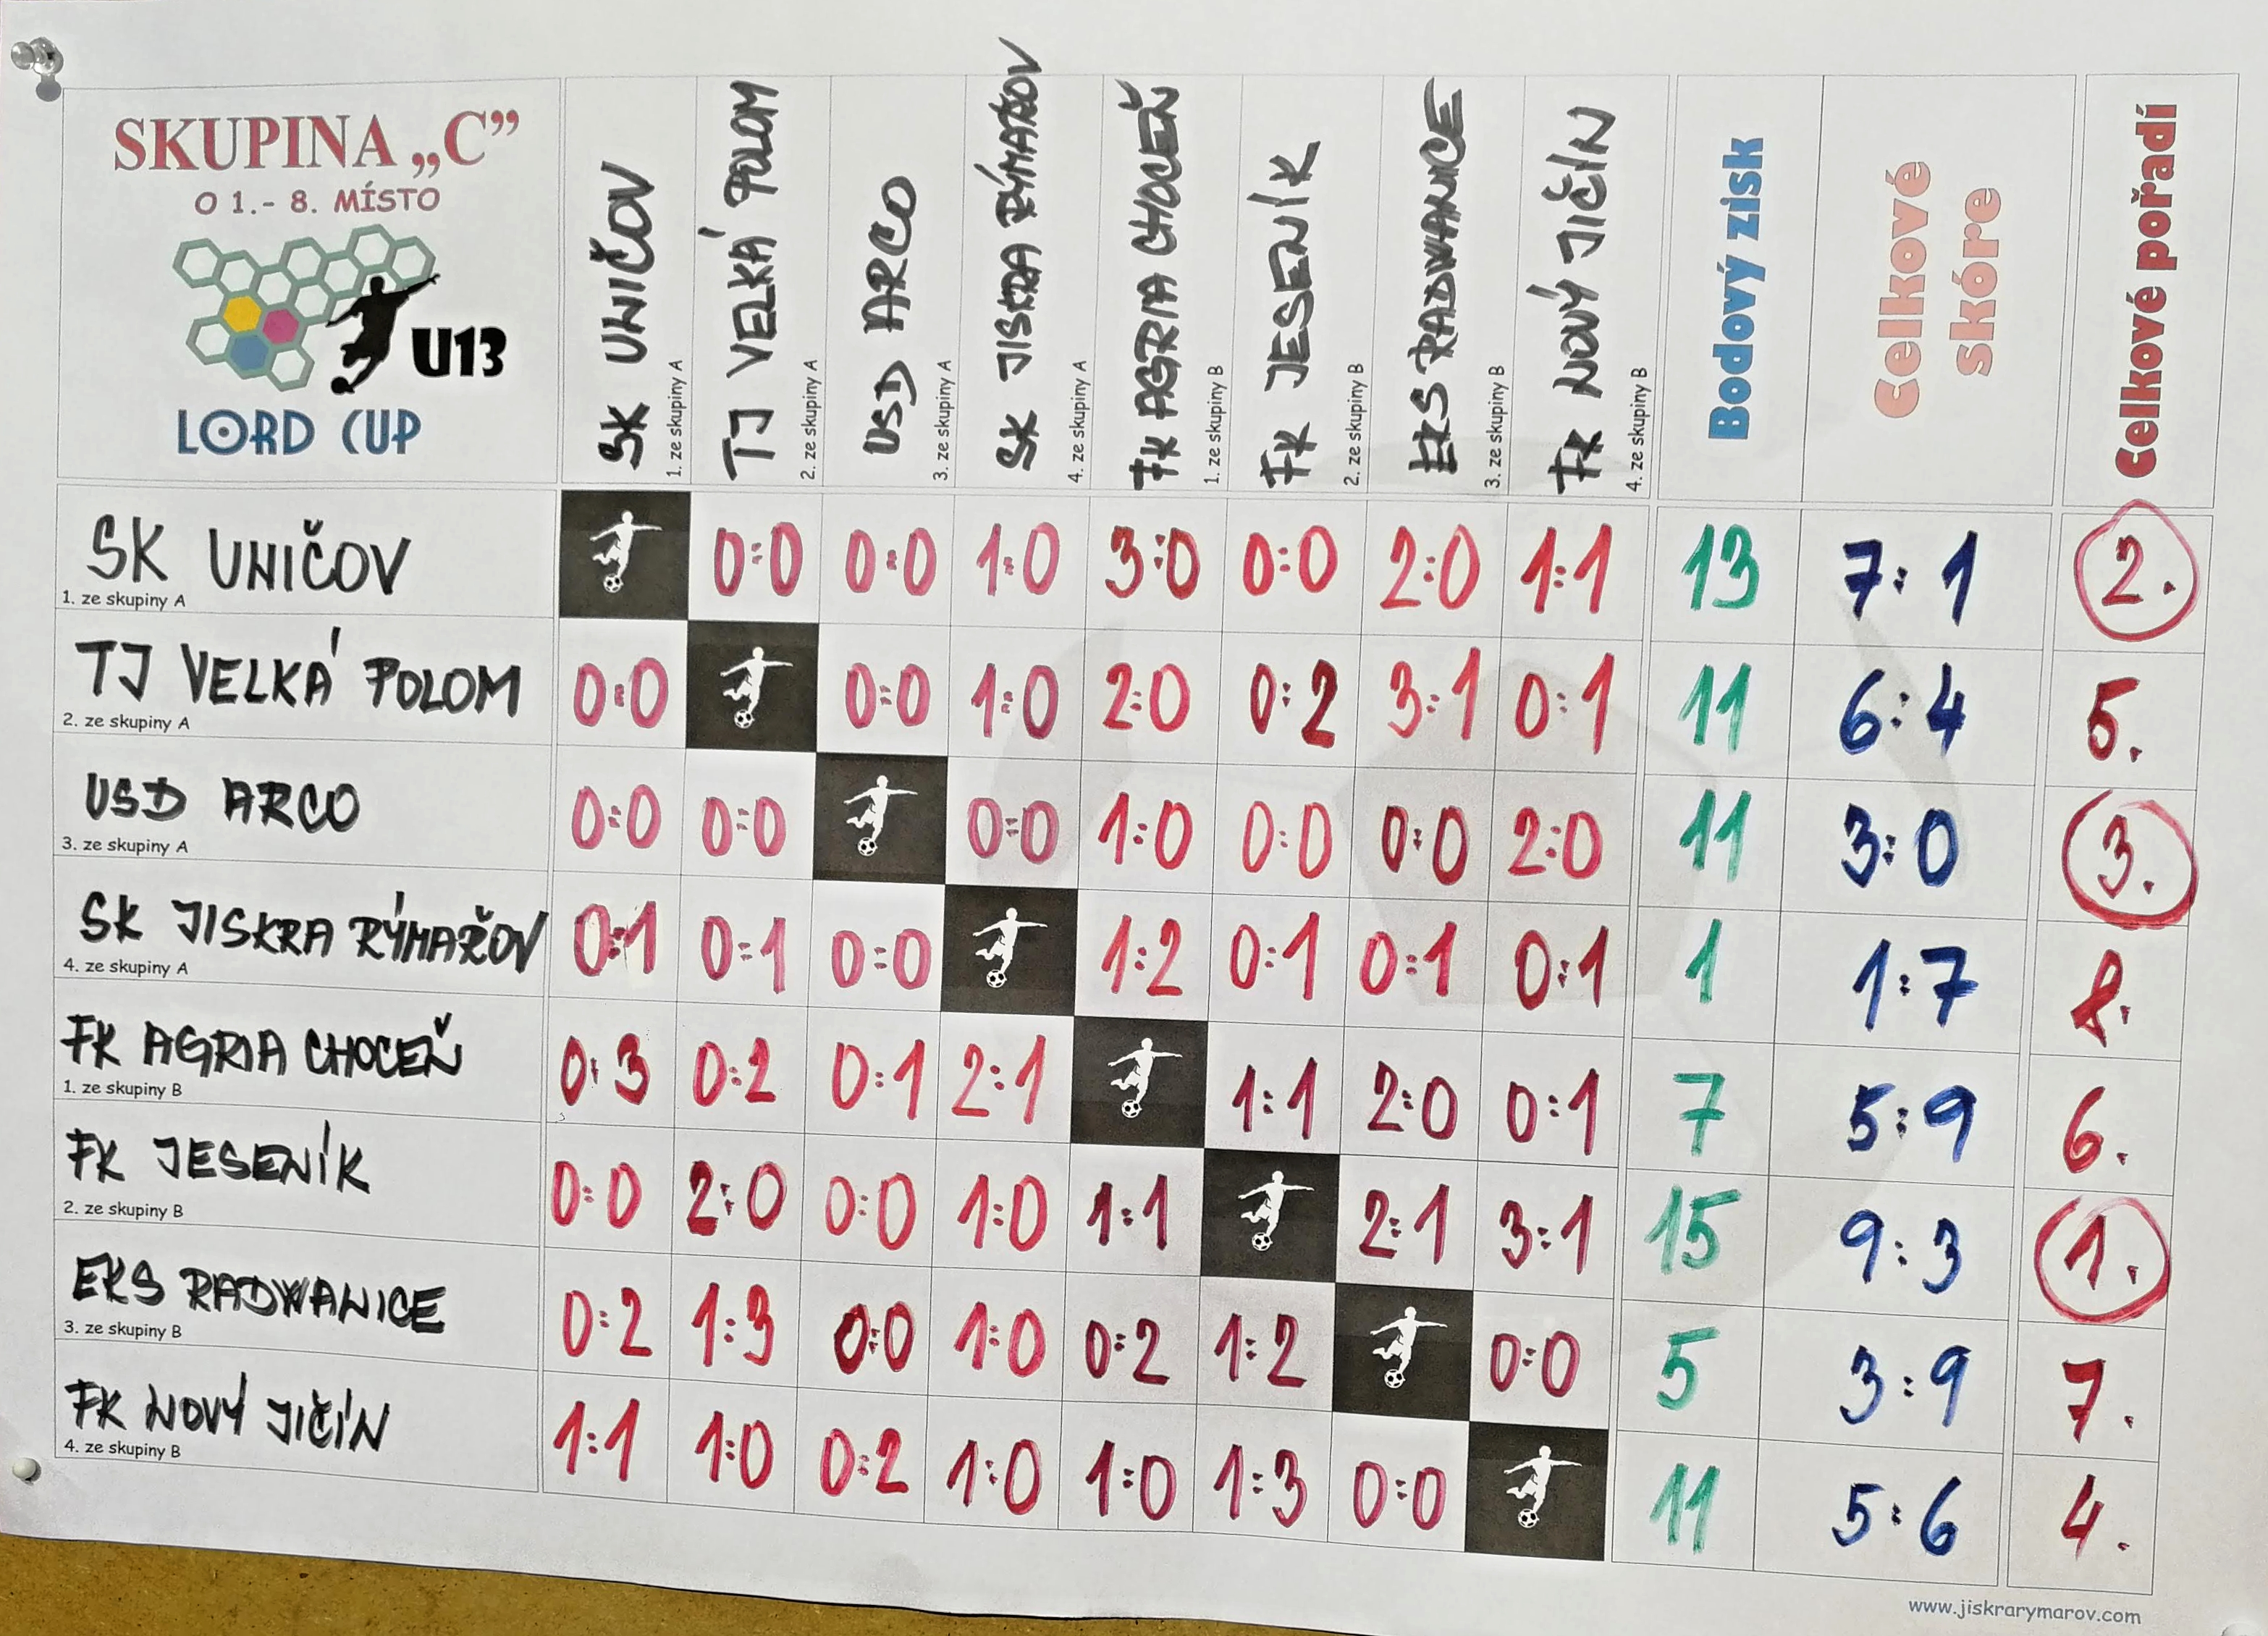 SKUPINA „C”
O 1.- 8. MÍSTO
U13
LORD CUP
SK UNIČOV
1. ze skupiny A
TJ VELKÁ POLOM
2. ze skupiny A
USD ARCO
3. ze skupiny A
SK JISKRA RÝMAŘOV
4. ze skupiny A
FK AGRIA CHOCEŇ
1. ze skupiny B
FK JESENÍK
2. ze skupiny B
EKS RADWANICE
3. ze skupiny B
FK NOVÝ JIČÍN
4. ze skupiny B
Bodový zisk
Celkové
skóre
Celkové pořadí
SK UNIČOV 0:0 0:0 1:0 3:0 0:0 2:0 1:1 13 7:1 2.
1. ze skupiny A
TJ VELKÁ POLOM 0:0 0:0 1:0 2:0 0:2 3:1 0:1 11 6:4 5.
2. ze skupiny A
USD ARCO 0:0 0:0 0:0 1:0 0:0 0:0 2:0 11 3:0 3.
3. ze skupiny A
SK JISKRA RÝMAŘOV 0:1 0:1 0:0 1:2 0:1 0:1 0:1 1 1:7 8.
4. ze skupiny A
FK AGRIA CHOCEŇ 0:3 0:2 0:1 2:1 1:1 2:0 0:1 7 5:9 6.
1. ze skupiny B
FK JESENÍK 0:0 2:0 0:0 1:0 1:1 2:1 3:1 15 9:3 1.
2. ze skupiny B
EKS RADWANICE 0:2 1:3 0:0 1:0 0:2 1:2 0:0 5 3:9 7.
3. ze skupiny B
FK NOVÝ JIČÍN 1:1 1:0 0:2 1:0 1:0 1:3 0:0 11 5:6 4.
4. ze skupiny B
www.jiskrarymarov.com